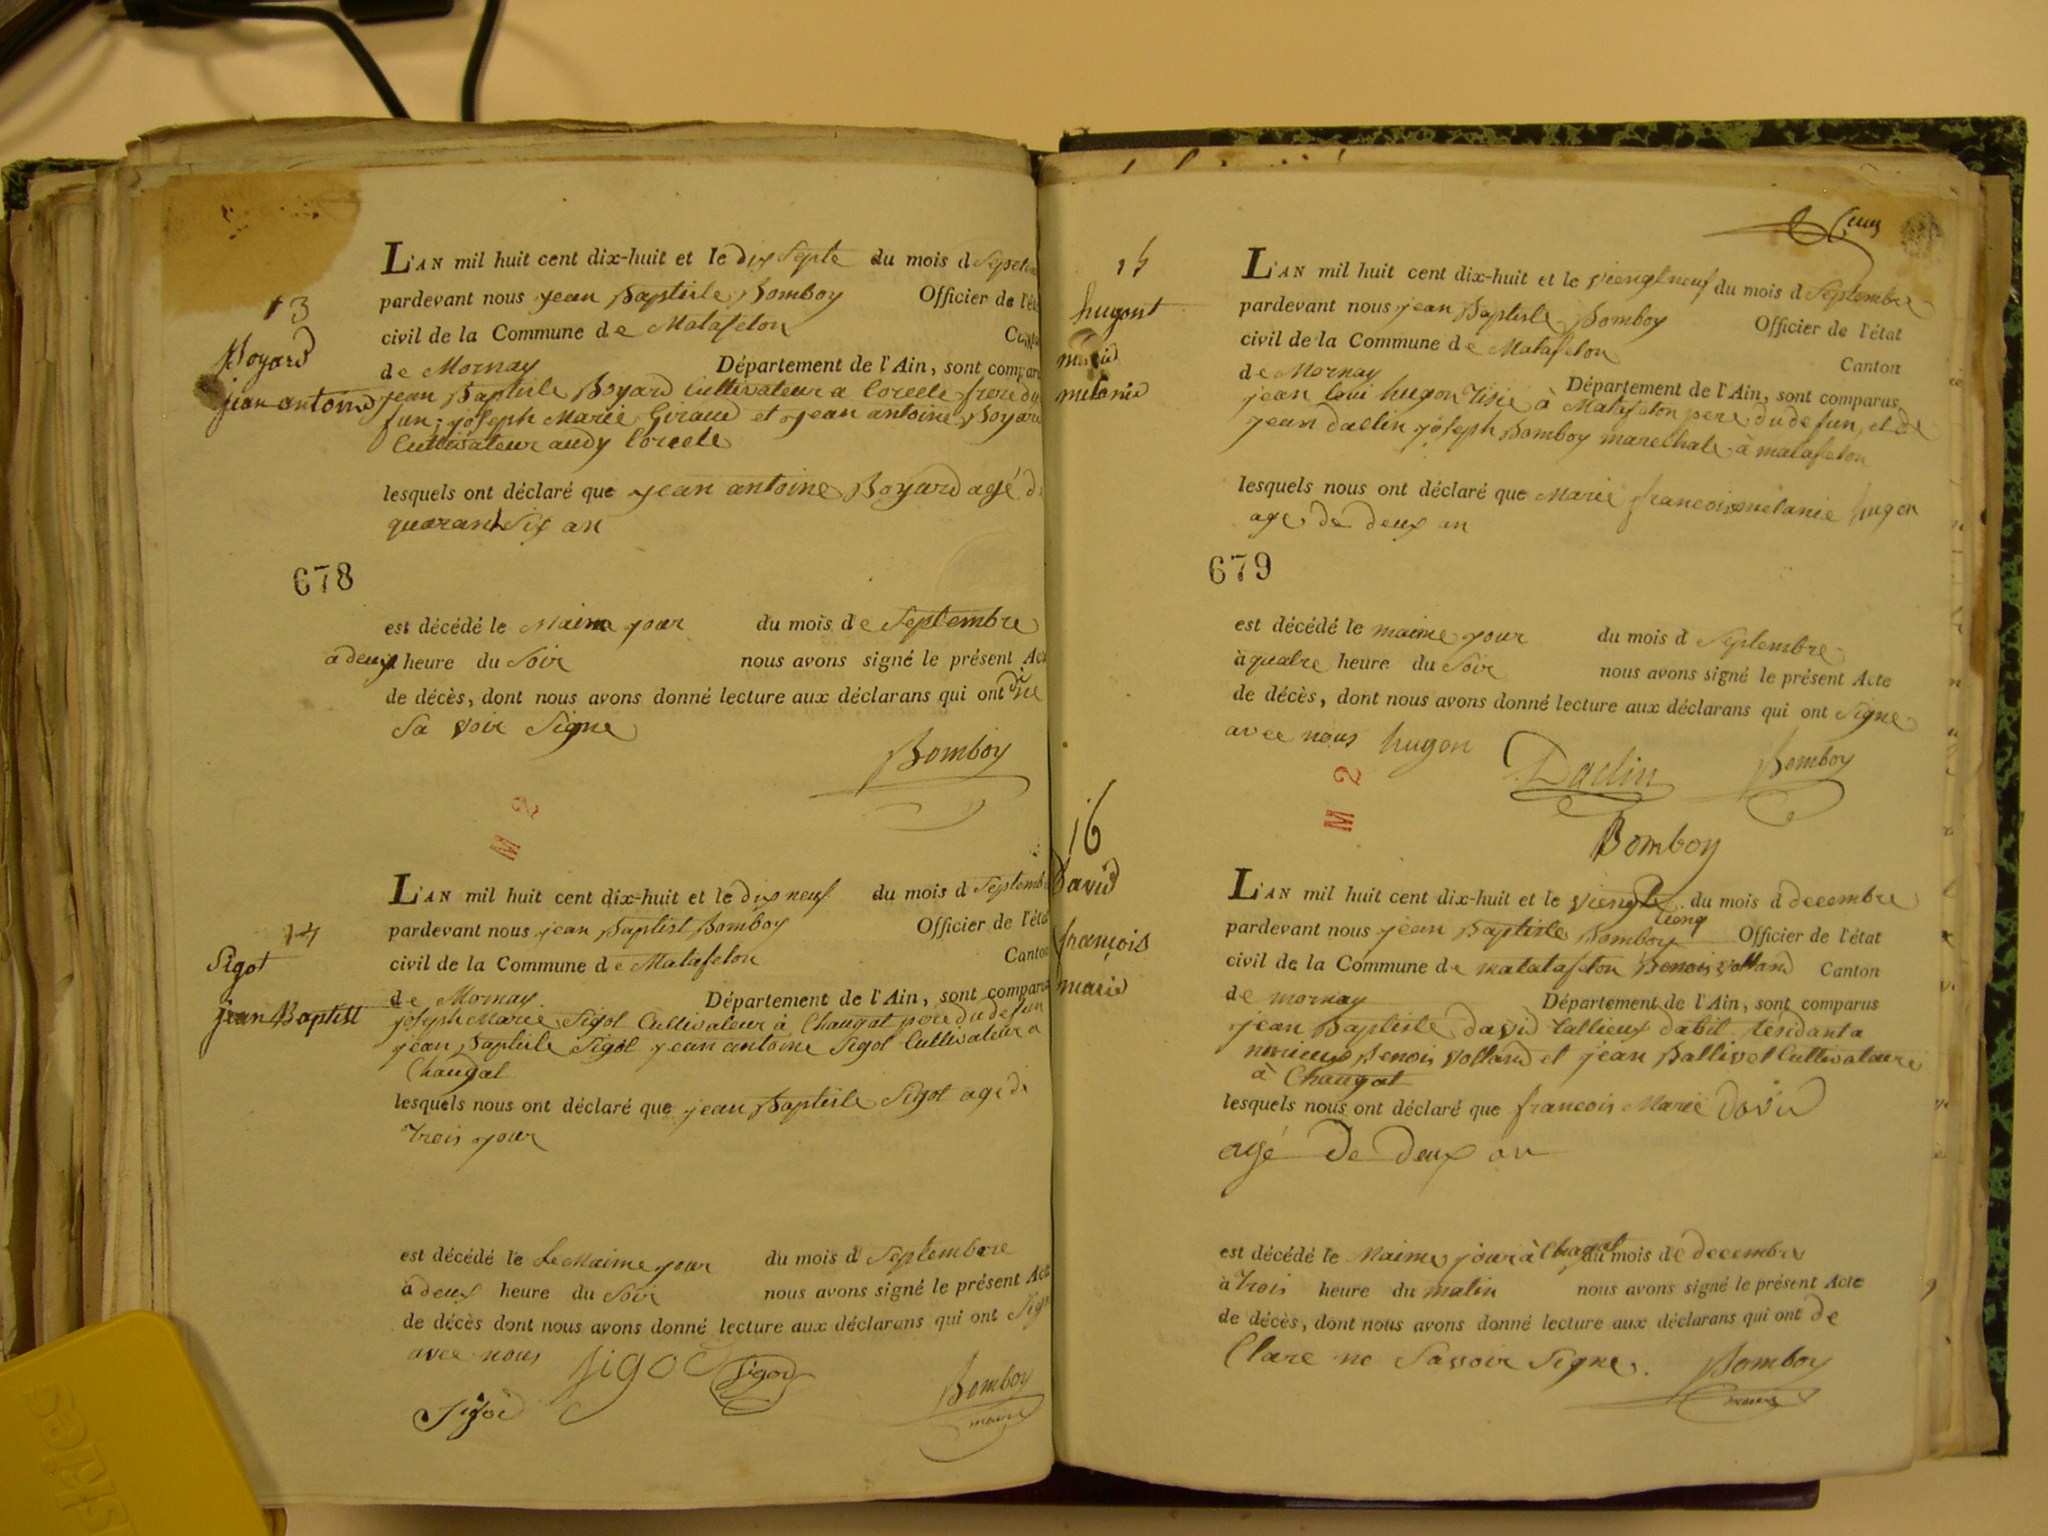 13
Boyard
jean antoine
L'AN mil huit cent dix-huit et le dix septe du mois d Septem
pardevant nous jean Baptiste Bomboy Officier de l'éta
civil de la Commune de Matafelon Canto
de Mornay Département de l'Ain, sont compar
jean Baptiste Boyard Cultivateur a Corcele frere du
fun, joseph Marie Giraud et jean antoine Boyard
Cultivateur audy Corcele
lesquels ont déclaré que jean antoine Boyard agé d
quarant Six an
678
est décédé le Maime jour du mois de Septembre
a deux heure du Soir nous avons signé le présent Act
de décès, dont nous avons donné lecture aux déclarans qui ont dit ne
Sa voir Signe
Bomboy
M 2
14
Sigot
jean Baptist
L'AN mil huit cent dix-huit et le dix neuf du mois d Septemb
pardevant nous jean Baptist Bomboy Officier de l'état
civil de la Commune de Matafelon Canton
de Mornay Département de l'Ain, sont comparu
joseph Marie Sigot Cultivateur à Chaugat pere du defun
jean Baptiste Sigot jean antoine Sigot Cultivateur a
Chaugat
lesquels nous ont déclaré que jean Baptiste Sigot agé de
Trois jour
est décédé le Le Maime jour du mois d Septembre
à deux heure du Soir nous avons signé le présent Acte
de décès dont nous avons donné lecture aux déclarans qui ont Sign
avec nous Sigot Sigot
Sigot Bomboy
maire
15
hugont
marie
melanie
L'AN mil huit cent dix-huit et le viengtneuf du mois d Septembre
pardevant nous jean Baptiste Bomboy Officier de l'état
civil de la Commune de Matafelon
Canton
de Mornay Département de l'Ain, sont comparus
jean loui hugon à Matafelon pere du defun, et de
jean daclin joseph Bomboy marechale à matafelon
lesquels nous ont déclaré que Marie francois melanie hugon
age de deux an
679
est décédé le maime jour du mois d Septembre
à quatre heure du Soir nous avons signé le présent Acte
de décès, dont nous avons donné lecture aux déclarans qui ont Signe
avec nous hugon
Daclin Bomboy
M 2
Bomboy
16
David
françois
marie
L'AN mil huit cent dix-huit et le viengt cienq du mois d decembre
pardevant nous jean Baptiste Bomboy Officier de l'état
civil de la Commune de matatafelon Benois volland Canton
de mornay Département de l'Ain, sont comparus
jean Baptiste david tallieux dabit résidant a
Benois Volland et jean Ballivet Cultivateure
à Chaugat
lesquels nous ont déclaré que francois Marie David
agé de deux an
est décédé le Maime jour à Chaugat du mois de decembre
à trois heure du matin nous avons signé le présent Acte
de décès, dont nous avons donné lecture aux déclarans qui ont de
Clare ne Savoir Signe. Bomboy
maire